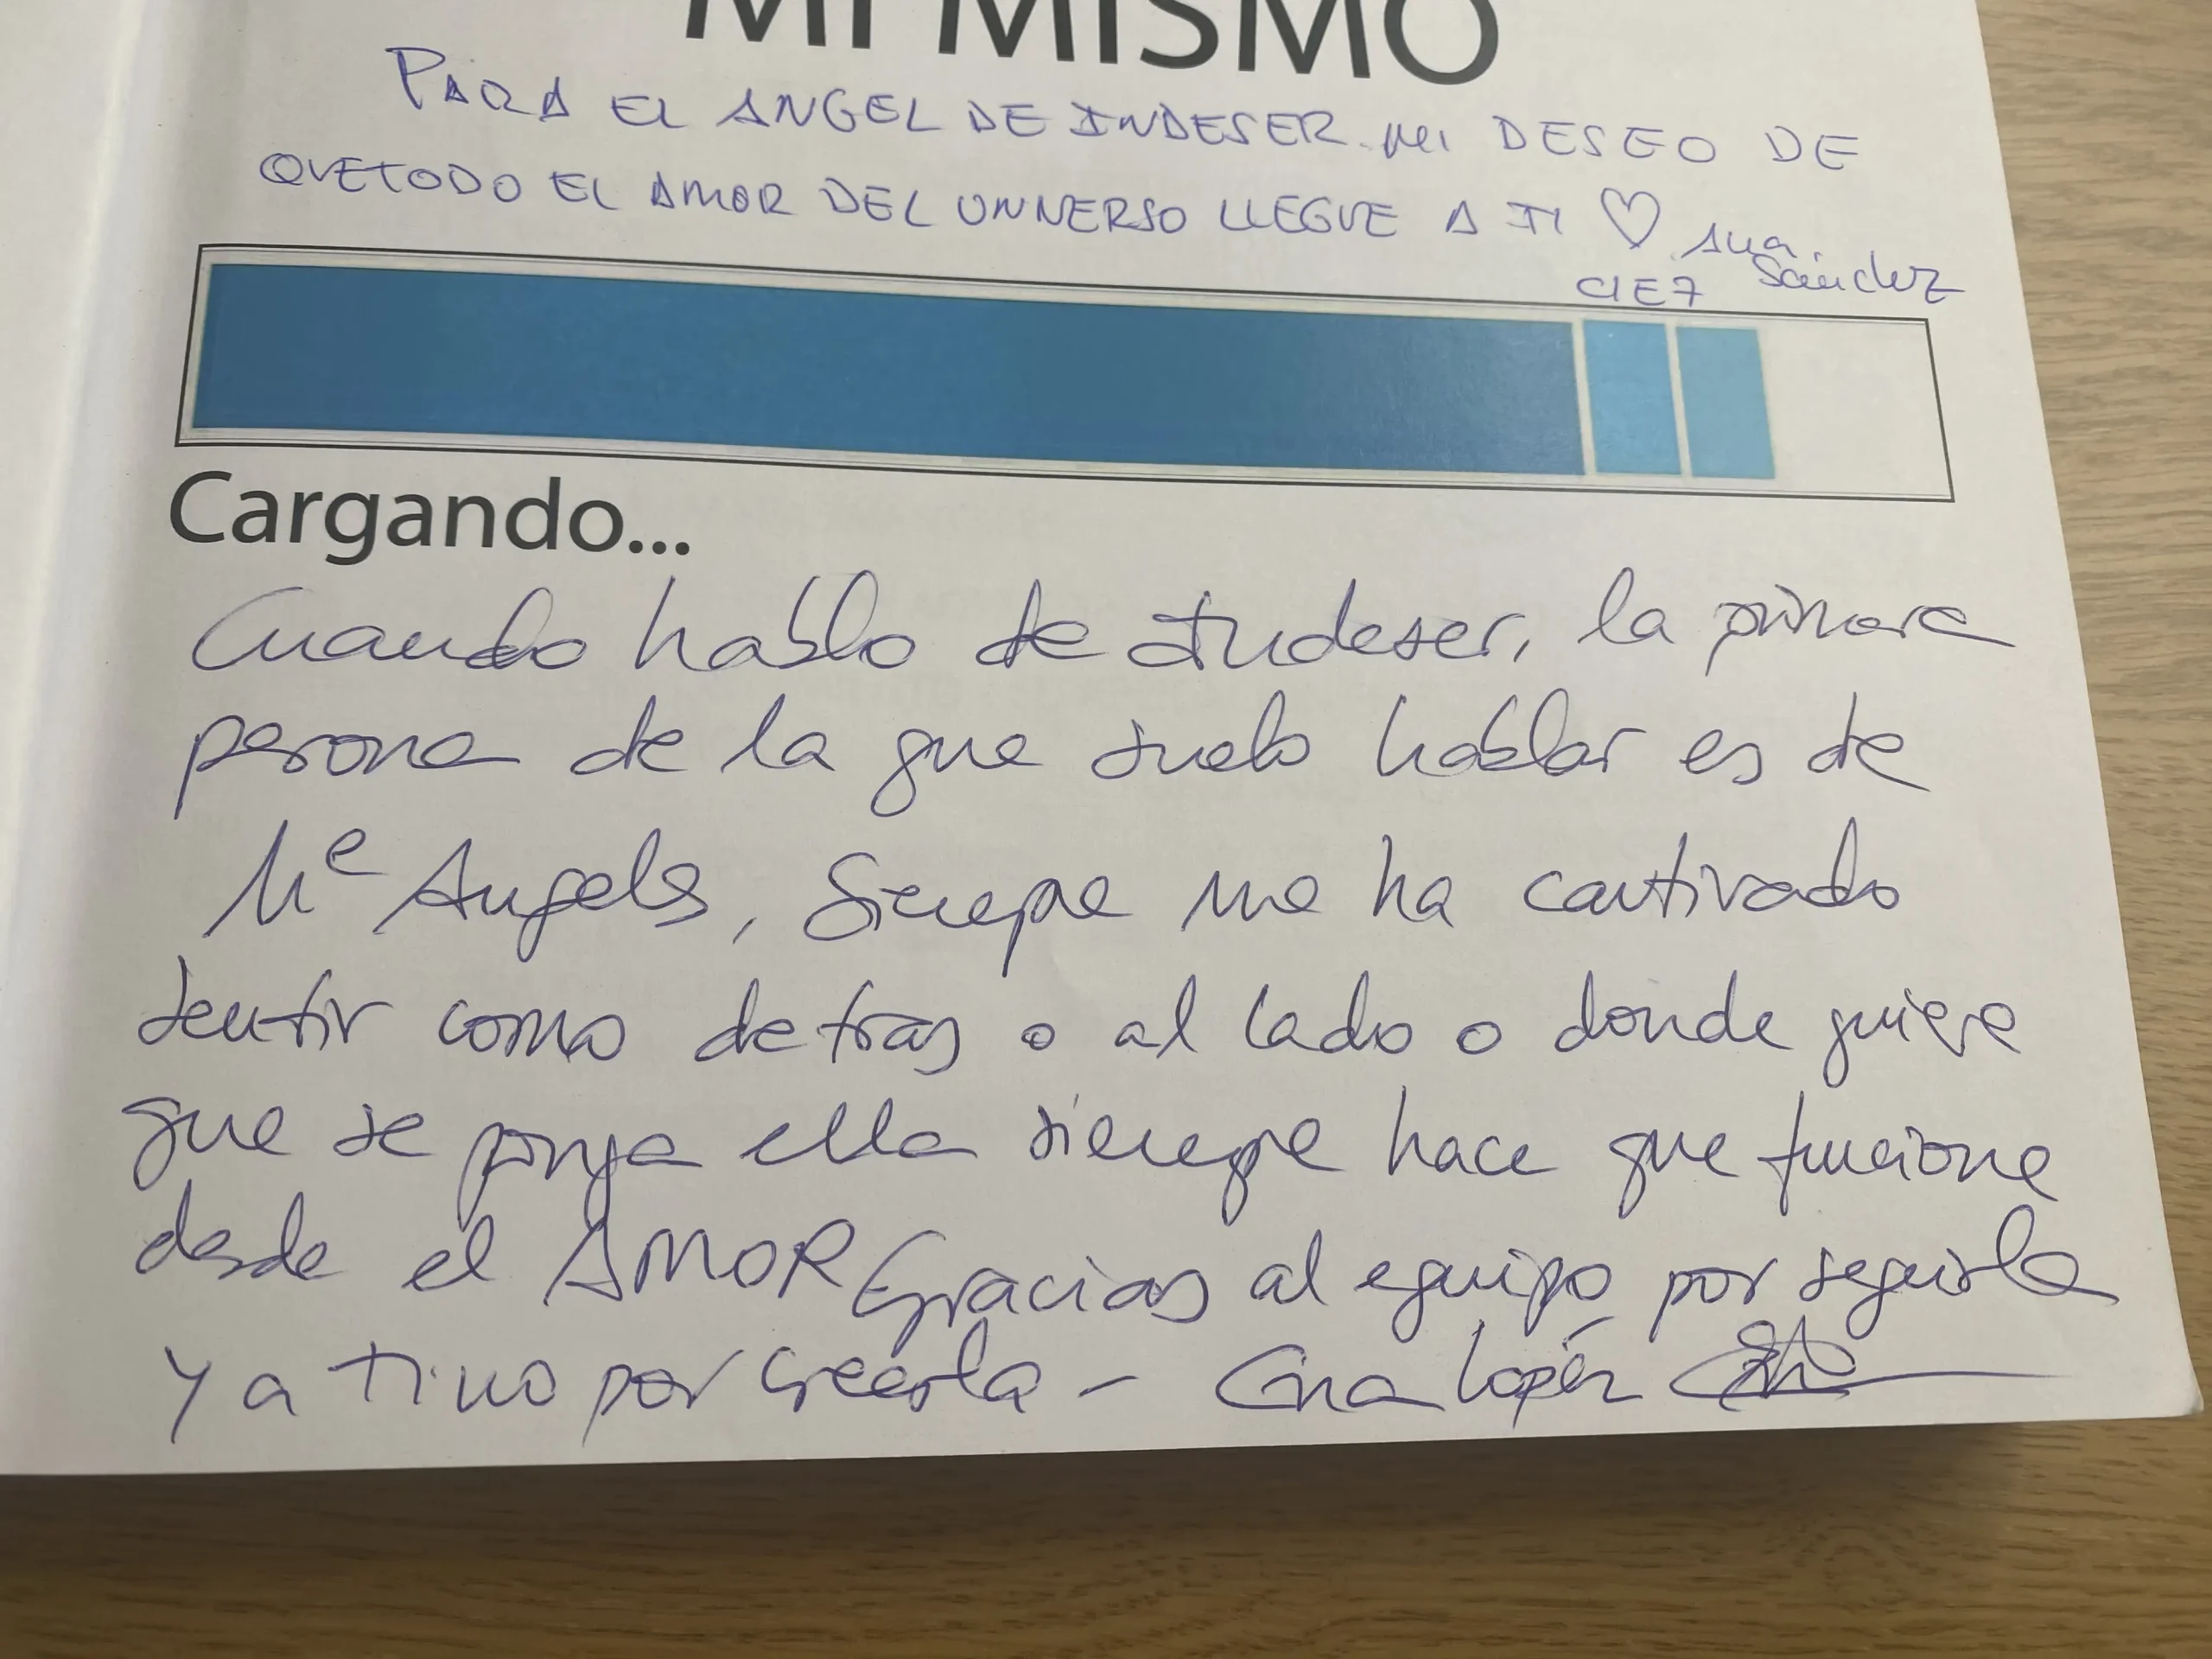 MI MISMO
PARA EL ANGEL DE INDESER. mi DESEO DE
QUE TODO EL AMOR DEL UNIVERSO LLEGUE A TI ♡ Ana
Sánchez
CIE7
Cargando...
Cuando hablo de Indeser, la primera
persona de la que suelo hablar es de
Mª Angeles, Siempre me ha cautivado
sentir como detras o al lado o donde quiera
que se ponga ella siempre hace que funcione
desde el AMOR Gracias al equipo por seguirla
y a Tino por creerla - López